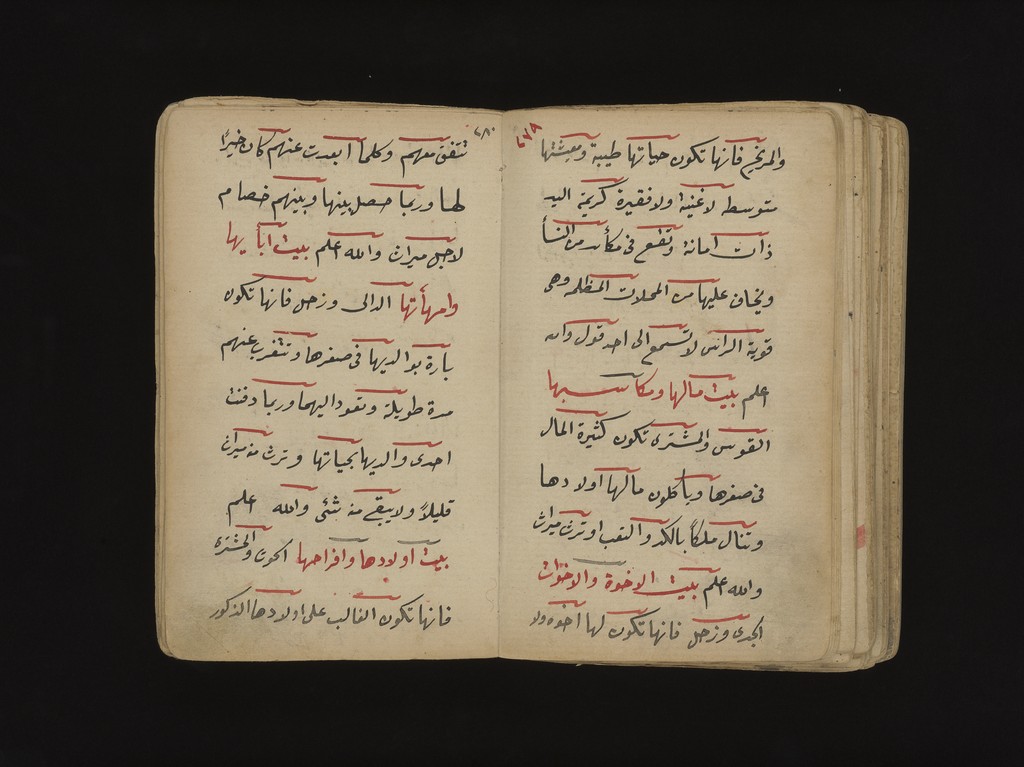 ٢٧٩
والمريخ فانها تكون حياتها طيبة ومعيشتها
متوسطه لا غنية ولا فقيرة كريمة اليد
ذات امانة وتقع فى مكأئد من النسأ
ويخاف عليها من المحلات المظلمه وهى
قوية الراس لا تسمع الى احد قول والله
اعلم بيت مالها ومكاسبها
القوس والمشترى تكون كثيرة المال
فى صغرها ويأكلون مالها اولادها
وتنال ملكاً بالكد والتعب او ترث ميراث
والله اعلم بيت الاخوة والاخوات
الجدى وزحل فانها تكون لها اخوه ولا
٢٨٠
تتفق معهم وكلما ابعدت عنهم كان خيرًا
لها وربما حصل بينها وبينهم خصام
لاجل ميراث والله اعلم بيت ابأيها
وامهأتها الدالى وزحل فانها تكون
بارة بوالديها فى صغرها وتتغرب عنهم
مدة طويلة وتعود اليهما وربما دفنت
احدى والديها بحياتها وترث منه ميراث
قليلاً ولا يبقى منه شئى والله اعلم
بيت اولادها وافراحها الحوت والمشترى
فانها تكون الغالب على اولادها الذكور